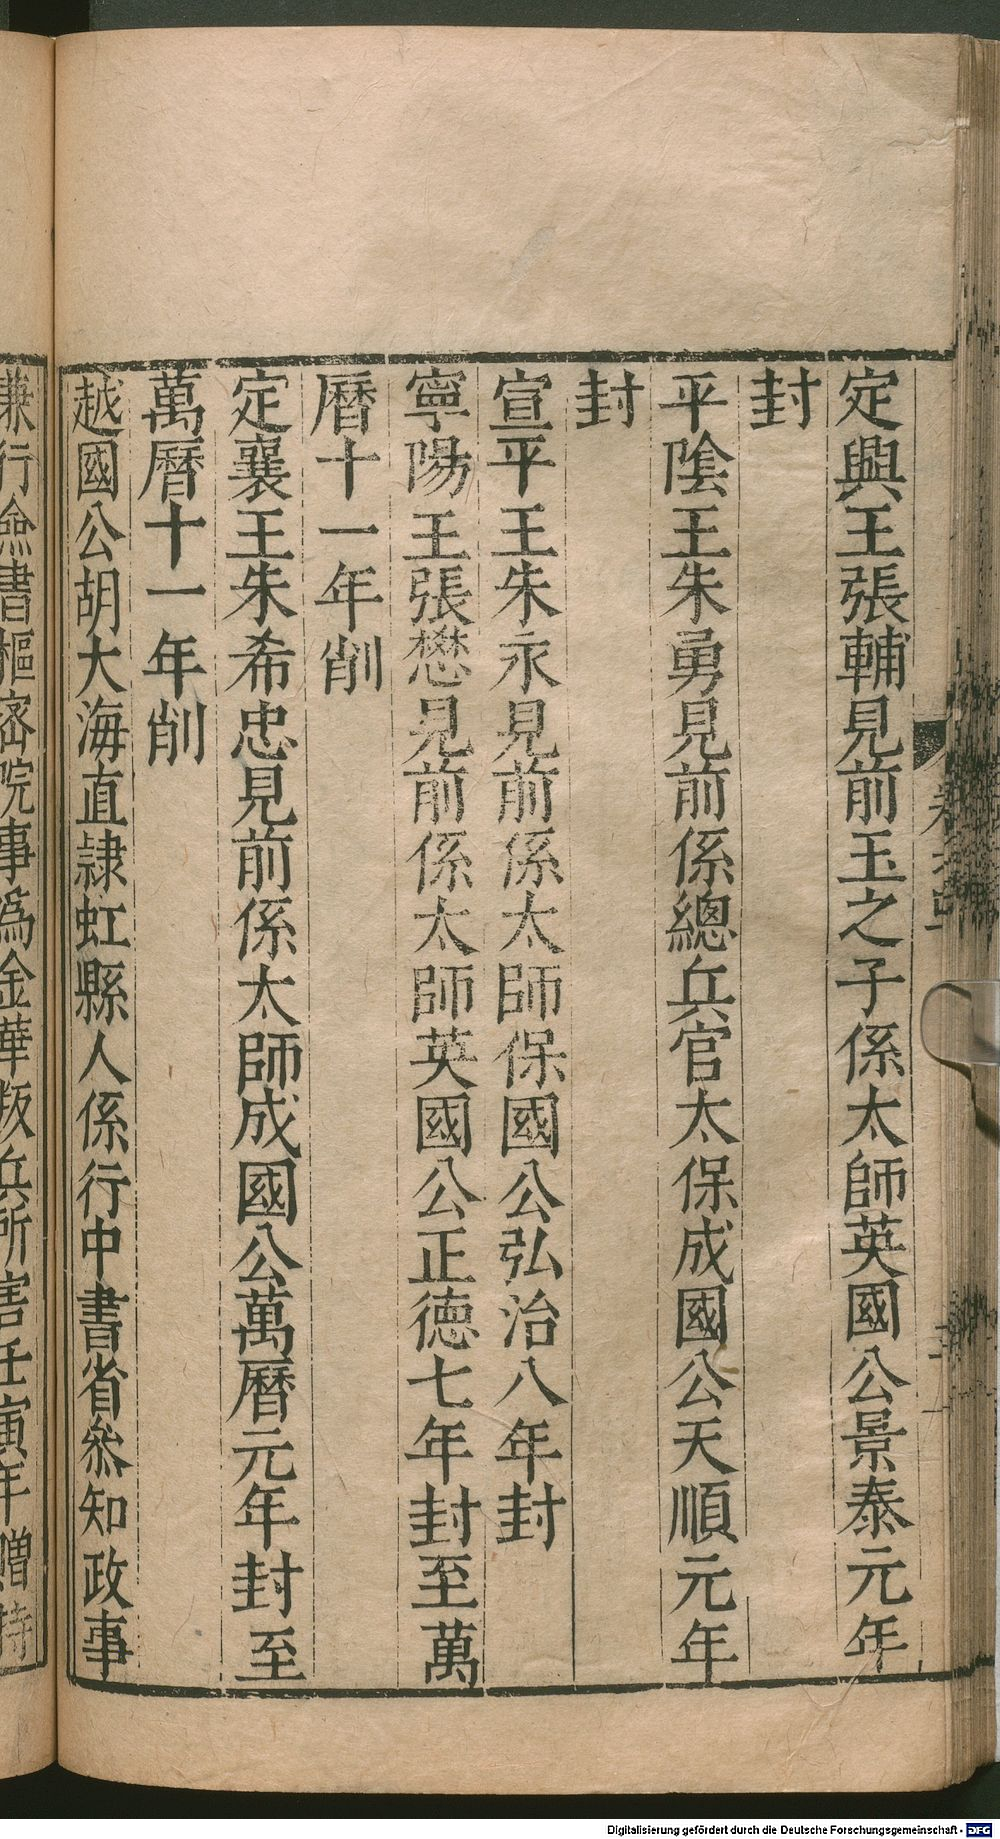 定興王張輔見前玉之子係太師英國公景泰元年
封
平陰王朱勇見前係總兵官太保成國公天順元年
封
宣平王朱永見前係太師保國公弘治八年封
寧陽王張懋見前係太師英國公正德七年封至萬
曆十一年削
定襄王朱希忠見前係太師成國公萬曆元年封至
萬曆十一年削
越國公胡大海直隷虹縣人係行中書省叅知政事
兼行僉書樞密院事為金華叛兵所害壬寅年贈特
Digitalisierung gefördert durch die Deutsche Forschungsgemeinschaft - DFG